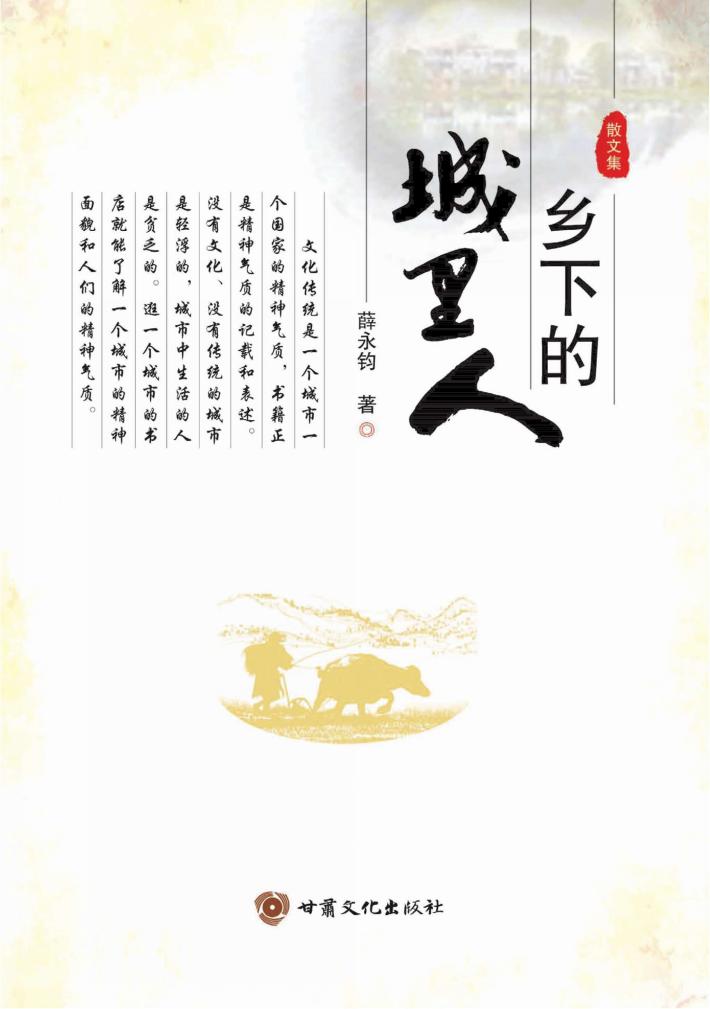 散文集
乡下的
城里人
薛永钧 著
文化传统是一个城市一
个国家的精神气质，书籍正
是精神气质的记载和表述。
没有文化、没有传统的城市
是轻浮的，城市中生活的人
是贫乏的。逛一个城市的书
店就能了解一个城市的精神
面貌和人们的精神气质。
甘肃文化出版社